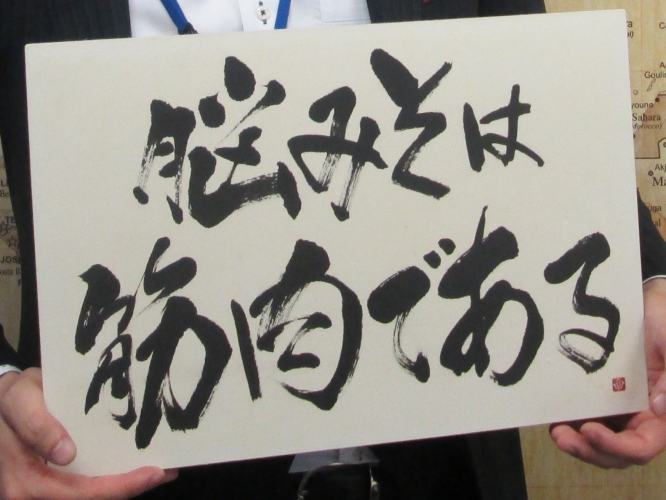 脳みそは
筋肉である
Sahara